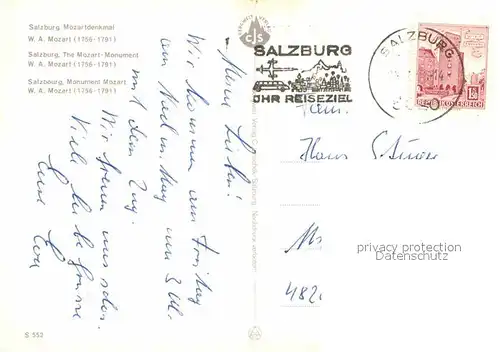 Salzburg, Mozartdenkmal
W. A. Mozart (1756 - 1791)
Salzburg, The Mozart-Monument
W. A. Mozart (1756 - 1791)
Salzbourg, Monument Mozart
W. A. Mozart (1756 - 1791)
Meine Lieben!
Wir kommen am Freitag
am um 3 Uhr
mit dem Zug.
Wir freuen uns schon.
Viele liebe Grüsse
Eure Eva
S 553
cds
SALZBURG
IHR REISEZIEL
SALZBURG
REPUBLIK ÖSTERREICH
Fam.
Hans
482
privacy protection
Datenschutz